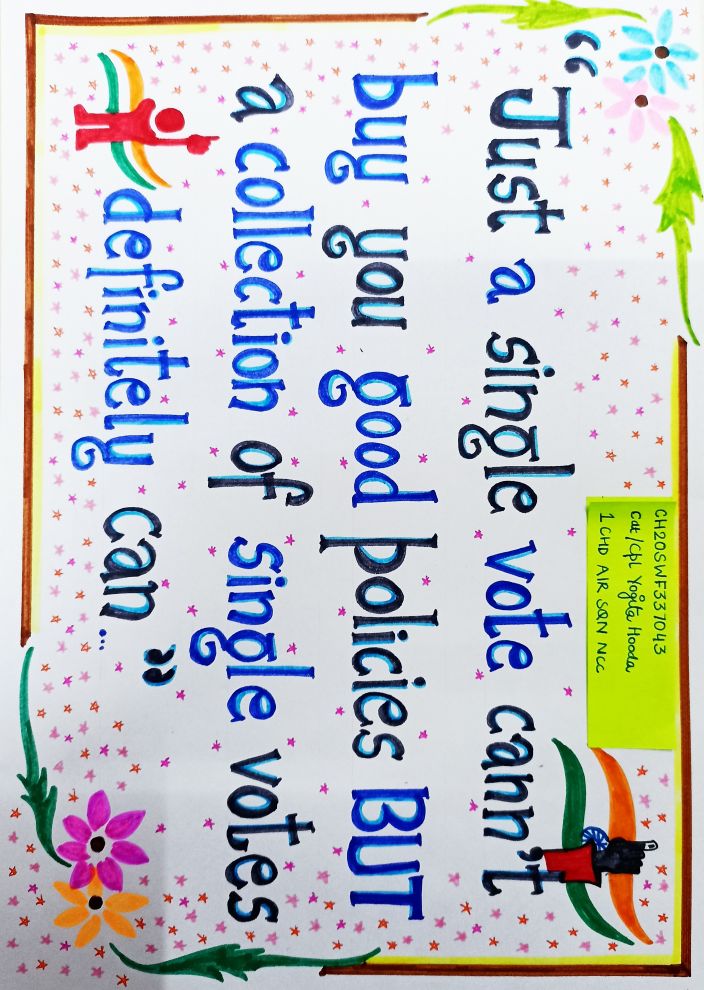 CH20SWF337043
Cdt/Cpl Yogita Hooda
1 CHD AIR SQN NCC
“Just a single vote cann't
buy you good policies BUT
a collection of single votes
definitely can...”